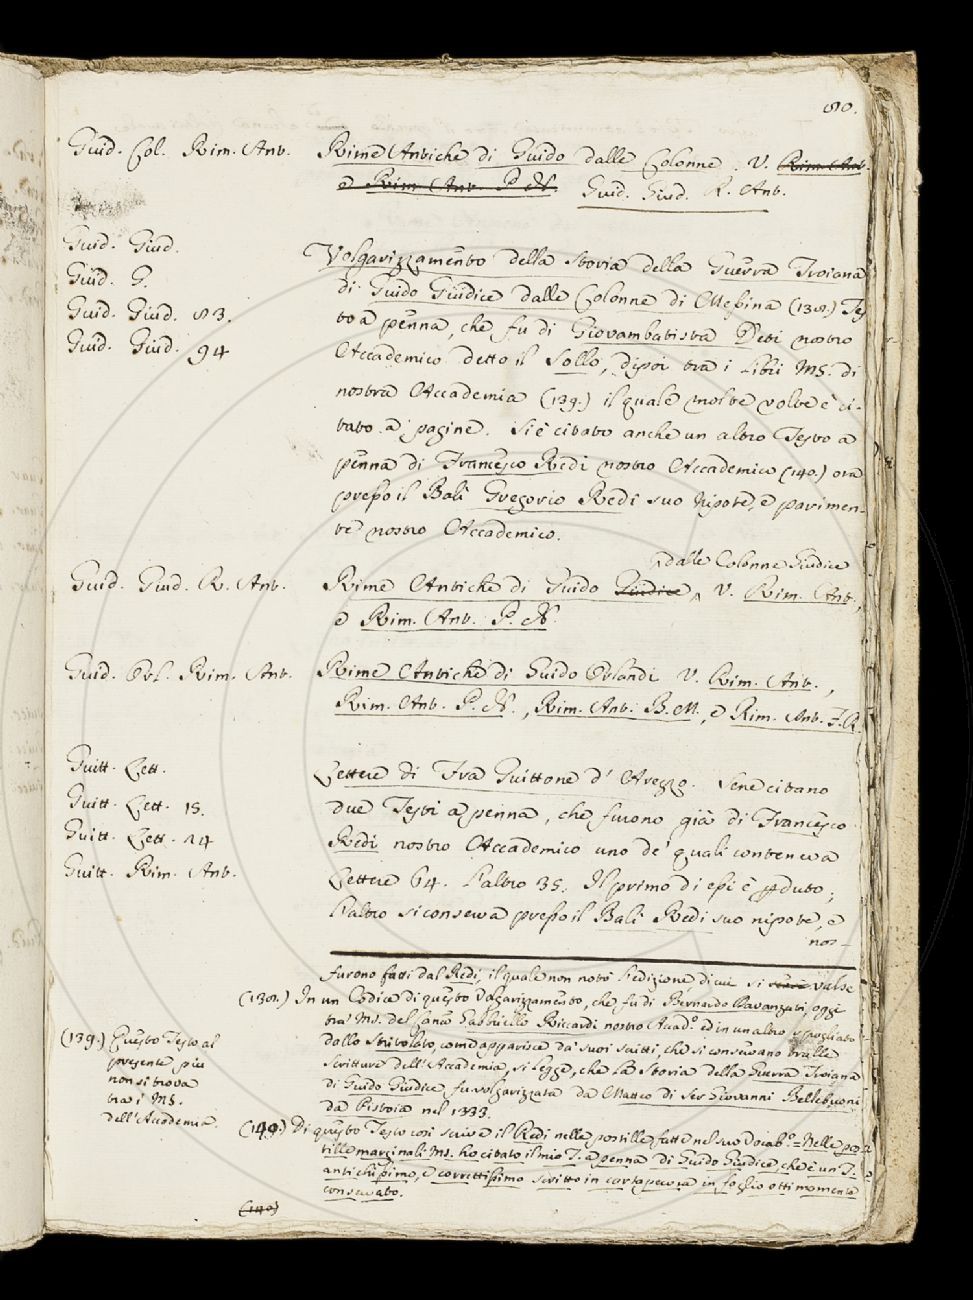 80.
Guid. Col. Rim. Ant.
Rime Antiche di Guido dalle Colonne. V. Rim. Ant.
e Rim. Ant. P. N. Guid. Giud. R. Ant.
Guid. Giud.
Guid. G.
Guid. Giud. 83.
Guid. Giud. 94
Volgarizzamento della Storia della Guerra Troiana
di Guido Giudice dalle Colonne di Messina (138.) Tes
to a penna, che fu di Giovambatista Deti nostro
Accademico detto il Sollo, dipoi tra i Libri MS. di
nostra Accademia (139.) il quale molte volte è ci-
tato a pagine. Si è citato anche un altro Testo a
penna di Francesco Redi nostro Accademico (140.) ora
presso il Balì Gregorio Redi suo Nipote, e parimen-
te nostro Accademico.
Guid. Giud. R. Ant.
dalle Colonne Giudice
Rime Antiche di Guido Giudice, V. Rim. Ant.,
e Rim. Ant. P. N.
Guid. Orl. Rim. Ant.
Rime Antiche di Guido Orlandi V. Rim. Ant.,
Rim. Ant. P. N., Rim. Ant. B. M., e Rim. Ant. F. R.
Guitt. Lett.
Guitt. Lett. 15.
Guitt. Lett. 14
Guitt. Rim. Ant.
Lettere di Fra Guittone d'Arezzo. Se ne citano
due Testi a penna, che furono già di Francesco
Redi nostro Accademico uno de' quali conteneva
Lettere 64. L'altro 35. Il primo di essi è pduto;
L'altro si conserva presso il Balì Redi suo nipote, e
nos-
furono fatti dal Redi, il quale non notò l'edizione, di cui si valse
(138.) In un Codice di questo Volgarizzamento, che fu di Bernardo Davanzati, oggi
tra' MS. del Canco Gabbriello Riccardi nostro Acado. ed in un altro spogliato
dallo Stritolato, come apparisce da' suoi scritti, che si conservano tralle
Scritture dell'Accademia, si legge, che la Storia della Guerra Troiana
di Guido Giudice fu volgarizzata da Matteo di Ser Giovanni Bellebuoni
da Pistoia nel 1333.
(139.) Questo Testo al
presente più
non si trova
tra i MS.
dell'Accademia.
(140.) Di questo Testo così scrive il Redi nelle postille fatte nel suo Vocabo. = Nelle pos
tille marginali MS. ho citato il mio T. a penna di Guido Giudice che è un T.
antichissimo, e correttissimo scritto in cartapecora in foglio ottimamente
conservato.
(140)